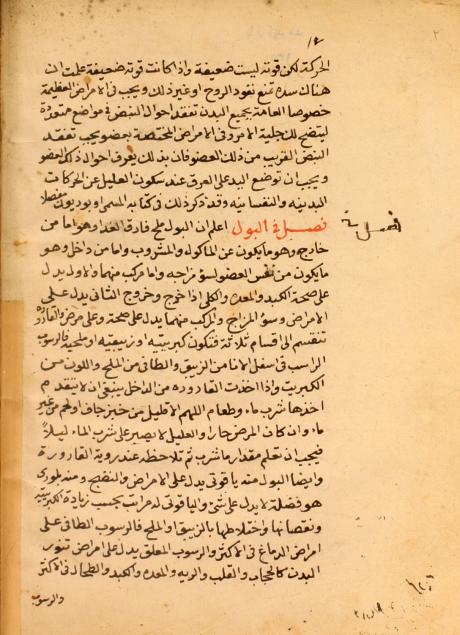 الحركة لكن قوته ليست ضعيفة واذا كانت قوته ضعيفة علمت ان
هناك سدة تمنع نفوذ الروح او غير ذلك ويجب في الامراض العظيمة
خصوصا العامة بجميع البدن تفقد احوال النبض في مواضع متعددة
ليتضح لك جلية الامر وفي الامراض المختصة بعضو يجب تفقد
النبض القريب من ذلك العضو فان بذلك يعرف احوال ذلك العضو
ويجب ان توضع اليد على العرق عند سكون العليل عن الحركات
البدنيه والنفسانية وقد ذكر ذلك في كتابه المسمى
فصل في البول اعلم ان البول ملح فارق الغدا وهو اما من
خارج وهو ما يكون عن الماكول والمشروب واما من داخل وهو
ما يكون من نفس العضو لسؤ مزاجه واما مركب منهما والاول يدل
على صحة الكبد والمعده والكلى اذا خرج وخروج الثاني يدل على
الامراض وسؤ المزاج والمركب منهما يدل على صحة وعلى مرض والقاروره
تنقسم الى اقسام ثلاثة فتكون كبريتيه او زيبقيه او ملحيه فالرسوب
الراسب في اسفل الانا من الزيبق والطافي من الملح واللون من
الكبريت واذا اخذت القاروره من الداخل ينبغي ان لا يتقدم
اخذها شرب ماء وطعام اللهم الا قليل من خبز جاف او لحم من غير
ماء وان كان المرض حارا والعليل لا يصبر على شرب الماء ليلاً
فيجب ان تعلم مقدار ما شرب ثم تلاحظه عند روية القارورة
وايضا البول منه ياقوتي يدل على الامراض والنضج ومنه بلوري
هو فضلة لا يدل على شئ والياقوتي له مراتب بحسب زيادة الكبريتيه
ونقصانها واختلاطها بالزيبق والملح فالرسوب الطافي على
امراض الدماغ في الاكثر والرسوب المعلق يدل على امراض تنور
البدن كالحجاب والقلب والريه والمعده والكبد والطحال في الاكثر
والرسوب